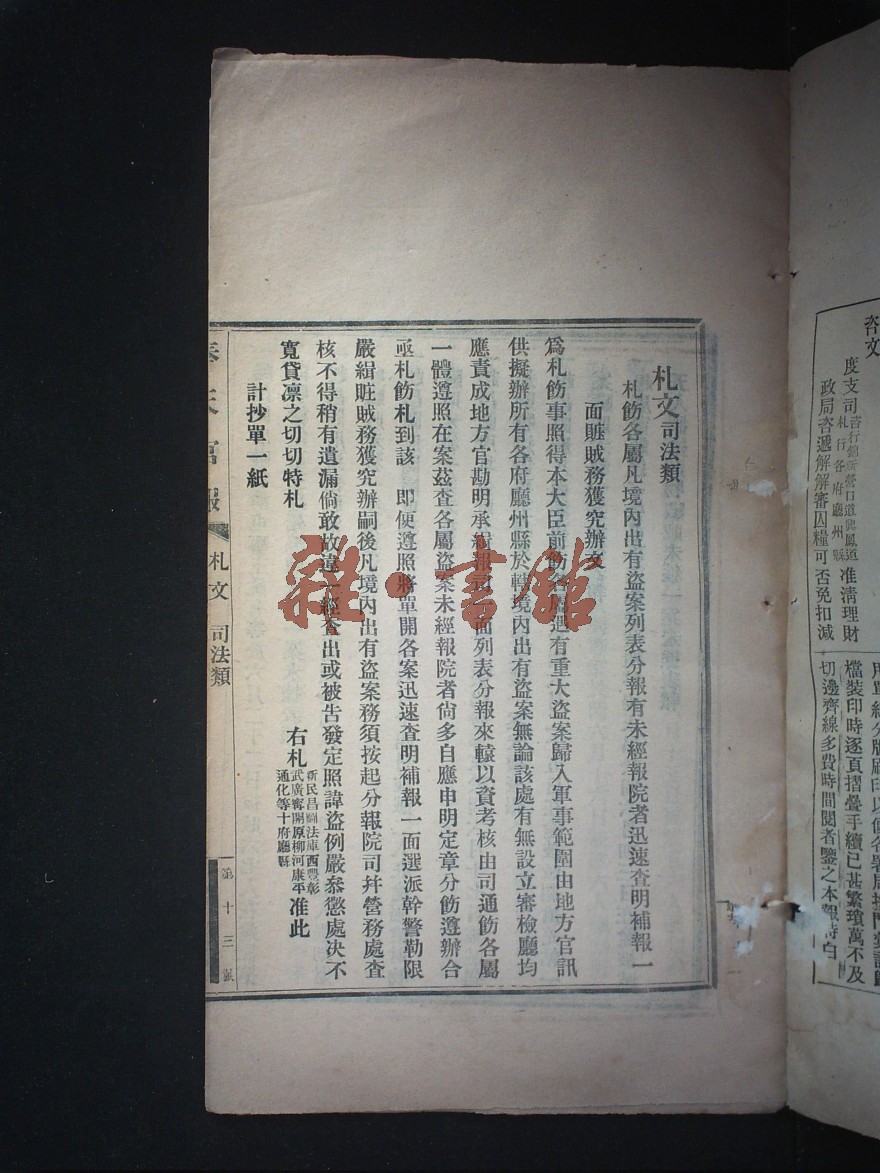 咨文
度支司咨行錦新營口道興鳳道札行各府廳州縣准清理財
政局咨遞解解審囚糧可否免扣減
檔裝印時逐頁摺疊手續已甚繁瑣萬不及
切邊齊線多費時間閱者鑒之本報特白
札文司法類
札飭各屬凡境內出有盜案列表分報有未經報院者迅速查明補報一
面賍賊務獲究辦文
爲札飭事照得本大臣前飭各屬遇有重大盜案歸入軍事範圍由地方官訊
供擬辦所有各府廳州縣於轄境內出有盜案無論該處有無設立審檢廳均
應責成地方官勘明承緝報司一面列表分報來轅以資考核由司通飭各屬
一體遵照在案茲查各屬盜案未經報院者尙多自應申明定章分飭遵辦合
亟札飭札到該 即便遵照將單開各案迅速查明補報一面選派幹警勒限
嚴緝賍賊務獲究辦嗣後凡境內出有盜案務須按起分報院司幷營務處查
核不得稍有遺漏倘敢故違一經查出或被告發定照諱盜例嚴叅懲處決不
寬貸凜之切切特札
右札新民昌圖法庫西豐彰武廣甯開原柳河康平通化等十府廳縣准此
計抄單一紙
奉天官報
札文 司法類
第十三號
雜·書館